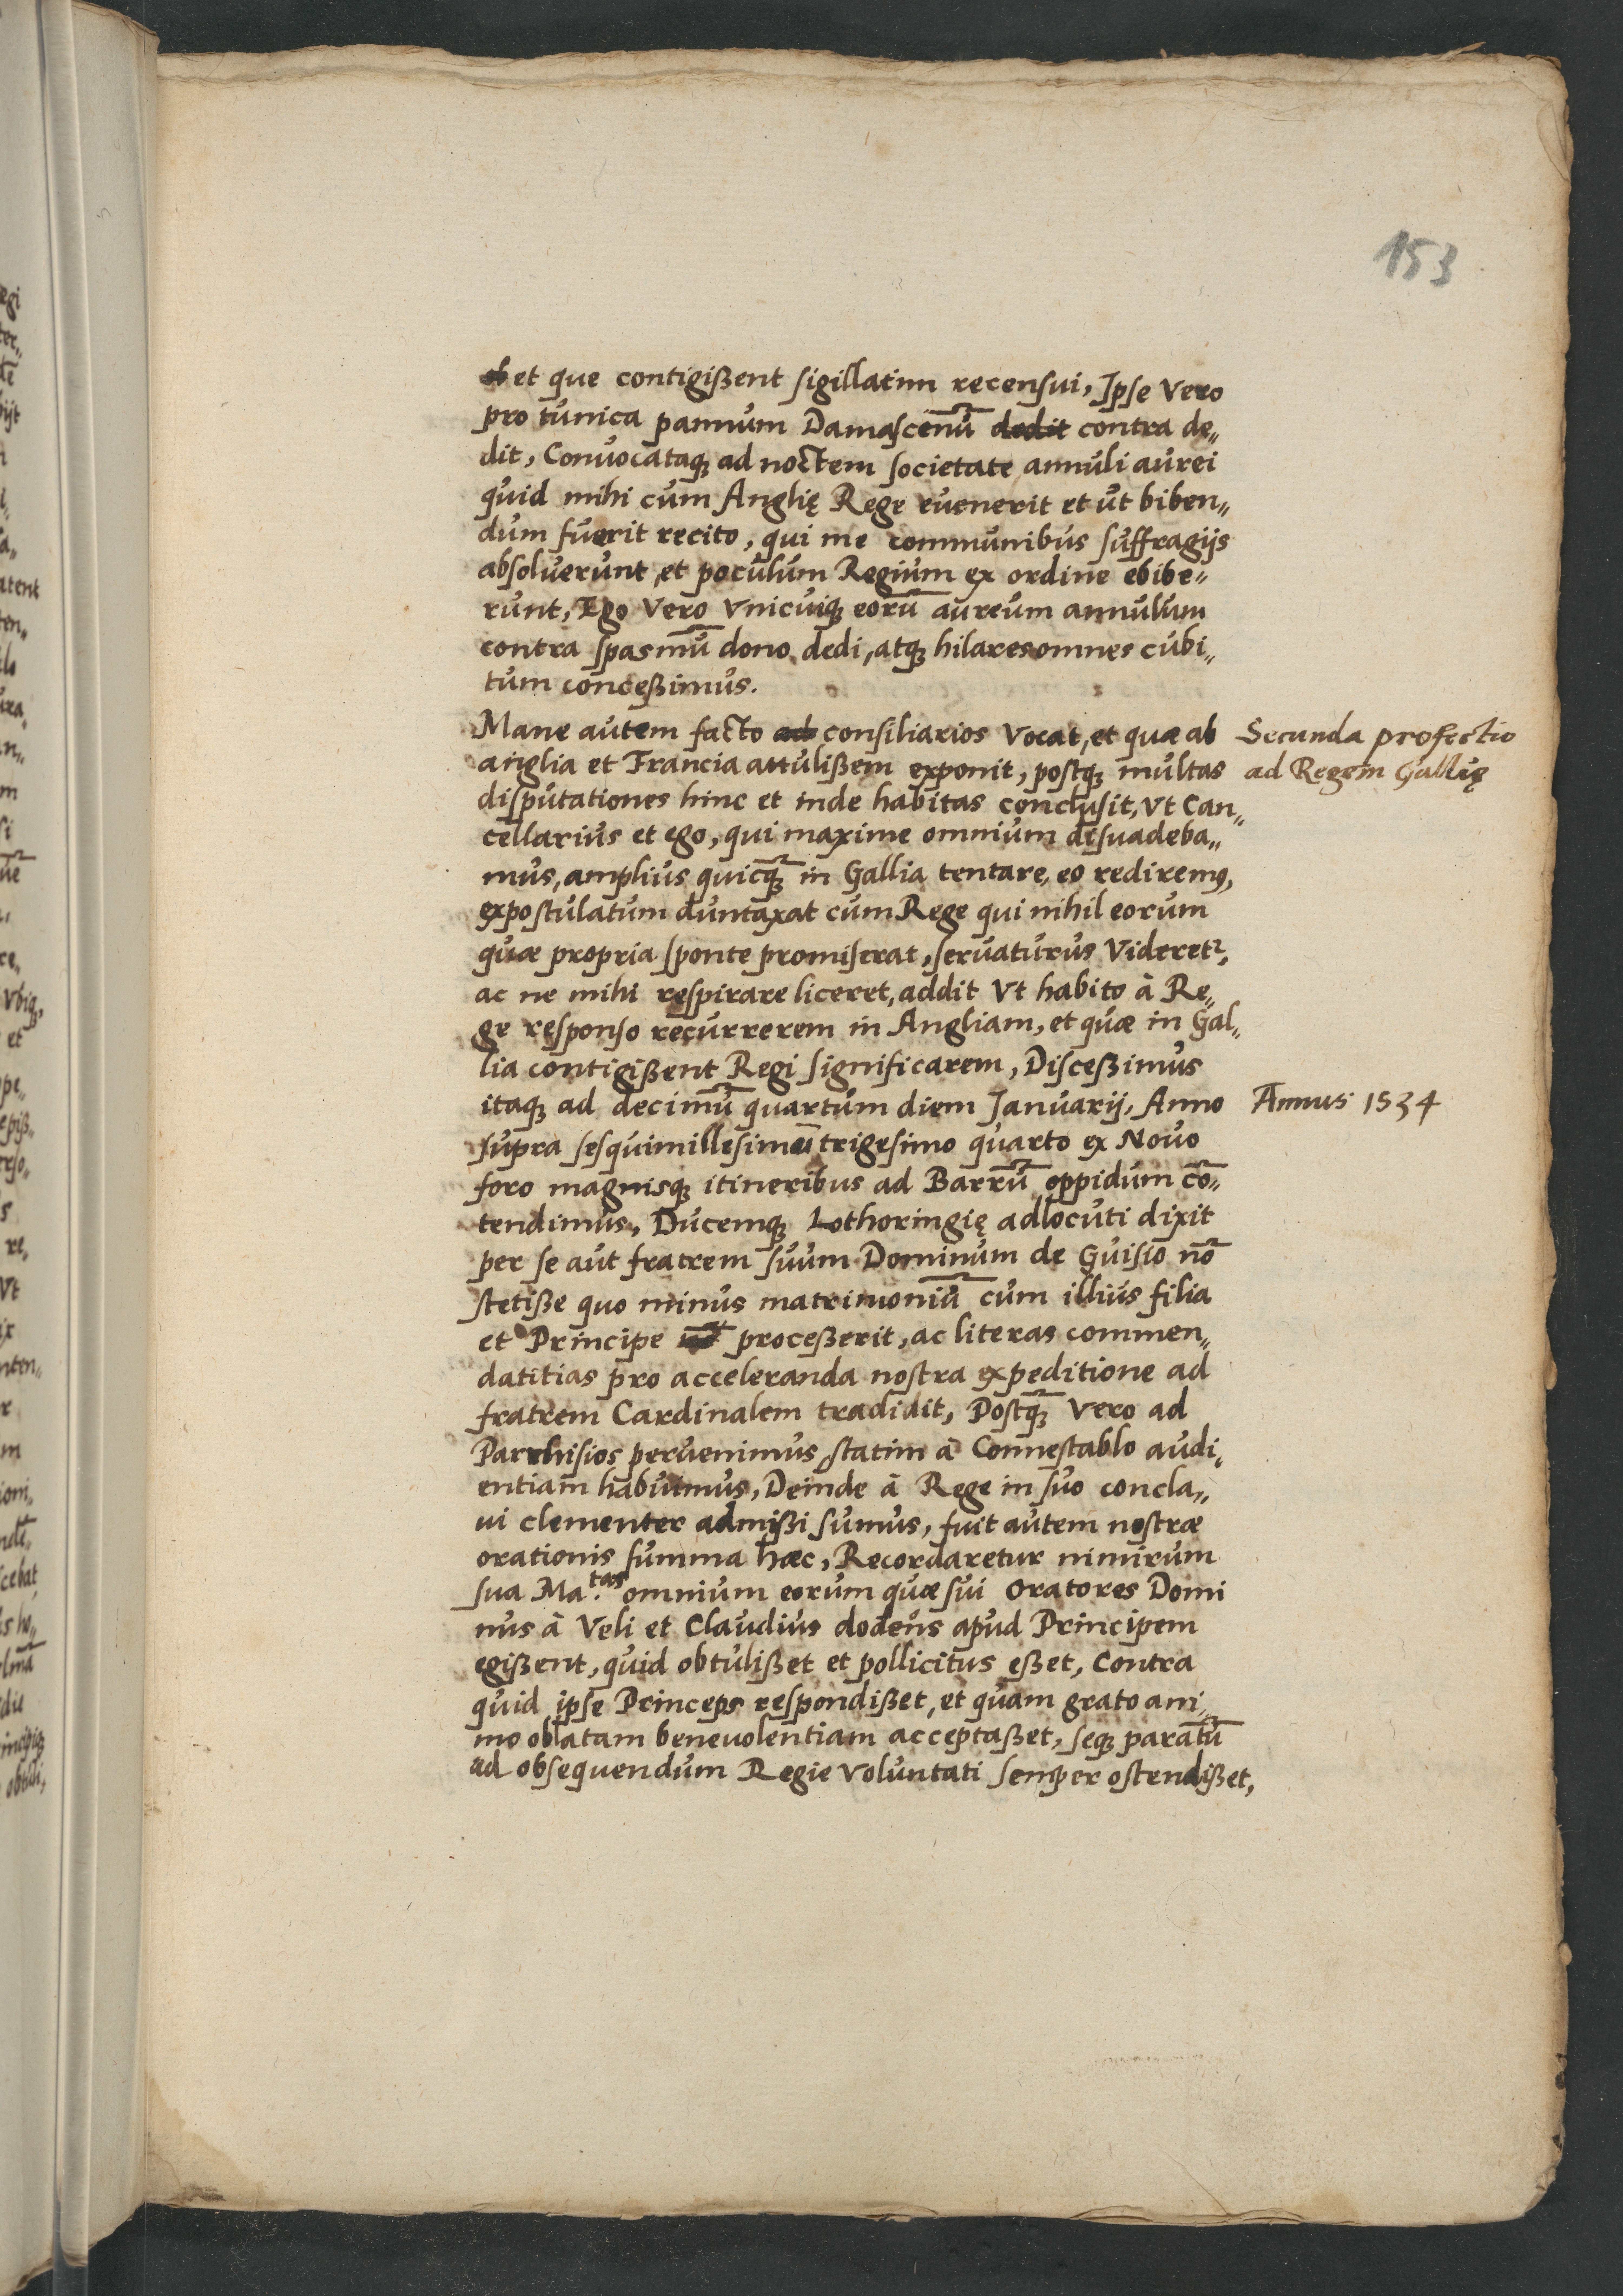 153
et que contigißent sigillatim recensui, Ipse Vero
pro tunica pannum Damascenũ dedit contra de„
dit, Convocataqꝫ ad noctem societate annuli aurei
quid mihi cum Anglię Rege euenerit et ut biben„
dum fuerit recito, qui me communibus suffragijs
absoluerunt, et poculum Regium ex ordine ebibe„
runt, Ego Vero Vnicuiqꝫ eorũ aureum annulum
contra spasmũ dono dedi, atqꝫ hilares omnes cubi„
tum conceßimus.
Mane autem facto ad consiliarios Vocat, et quæ ab
anglia et Francia attulißem exponit, postqꝫ multas
disputationes hinc et inde habitas conclusit, Vt Can„
cellarius et ego, qui maxime omnium disuadeba„
mus, amplius quicqꝫ̃ in Gallia tentare, eo rediremꝰ,
expostulatum duntaxat cum Rege qui nihil eorum
quæ propria sponte promiserat, seruaturus Videretᷣ,
ac ne mihi respirare liceret, addit Vt habito à Re„
ge responso recurrerem in Angliam, et quæ in Gal„
lia contigißent Regi significarem, Disceßimus
itaqꝫ ad decimũ quartum diem Januarij, Anno
supra sesquimillesimum trigesimo quarto ex Novo
foro magnisqꝫ itineribus ad Barrũ oppidum cõ„
tendimus, Ducemqꝫ Lothoringię adlocuti dixit
per se aut fratrem suum Dominum de Guisio nõ
stetiße quo minus matrimoniũ cum illius filia
et Principe proceßerit, ac literas commen„
datitias pro acceleranda nostra expeditione ad
fratrem Cardinalem tradidit, Postqꝫ̃ Vero ad
Parrhisios peruenimus, statim à Connestablo audi„
entiam habuimus, Deinde à Rege in suo concla„
ui clementer admißi sumus, fuit autem nostræ
orationis summa hæc, Recordaretur nimirum
sua Ma.tas omnium eorum quæ sui Oratores Domi
nus à Veli et Claudius dodeus apud Principem
egißent, quid obtulißet et pollicitus eßet, Contra
quid ipse Princeps respondißet, et quam grato ani„
mo oblatam beneuolentiam acceptaßet, seqꝫ paratũ
ad obsequendum Regie Voluntati semper ostendißet,
Secunda profectio
ad Regem Gallię
Annus 1534